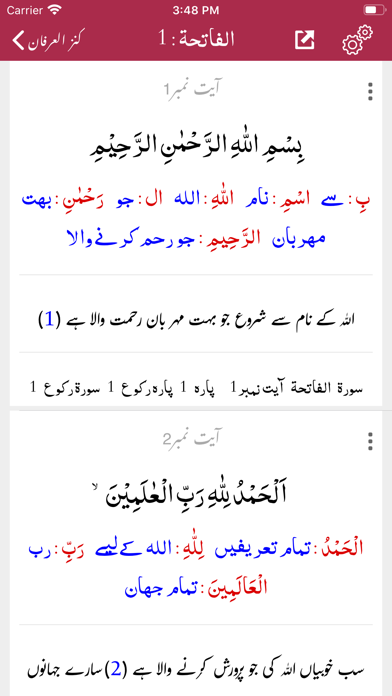 Carrier 3:48 PM
کنز العرفان الفاتحة : 1
آیت نمبر 1
بِسْمِ اللّٰهِ الرَّحْمٰنِ الرَّحِیْمِ
بِ: سے اسْمِ: نام اللّٰهِ: الله ال: جو رَحْمٰنِ: بهت
مهربان الرَّحِیمِ: جو رحم کرنے والا
اللہ کے نام سے شروع جو بہت مہربان رحمت والا ہے (1)
سورۃ الفاتحة آیت نمبر 1 پارہ 1 پارہ رکوع 1 سورۃ رکوع 1
آیت نمبر 2
اَلْحَمْدُ لِلّٰهِ رَبِّ الْعٰلَمِیْنَ ۙ
الْحَمْدُ: تمام تعریفیں لِلّٰهِ: الله کے لیے رَبِّ: رب
الْعَالَمِینَ: تمام جهان
سب خوبیاں اللہ کی جو پرورش کرنے والا ہے (2) سارے جہانوں